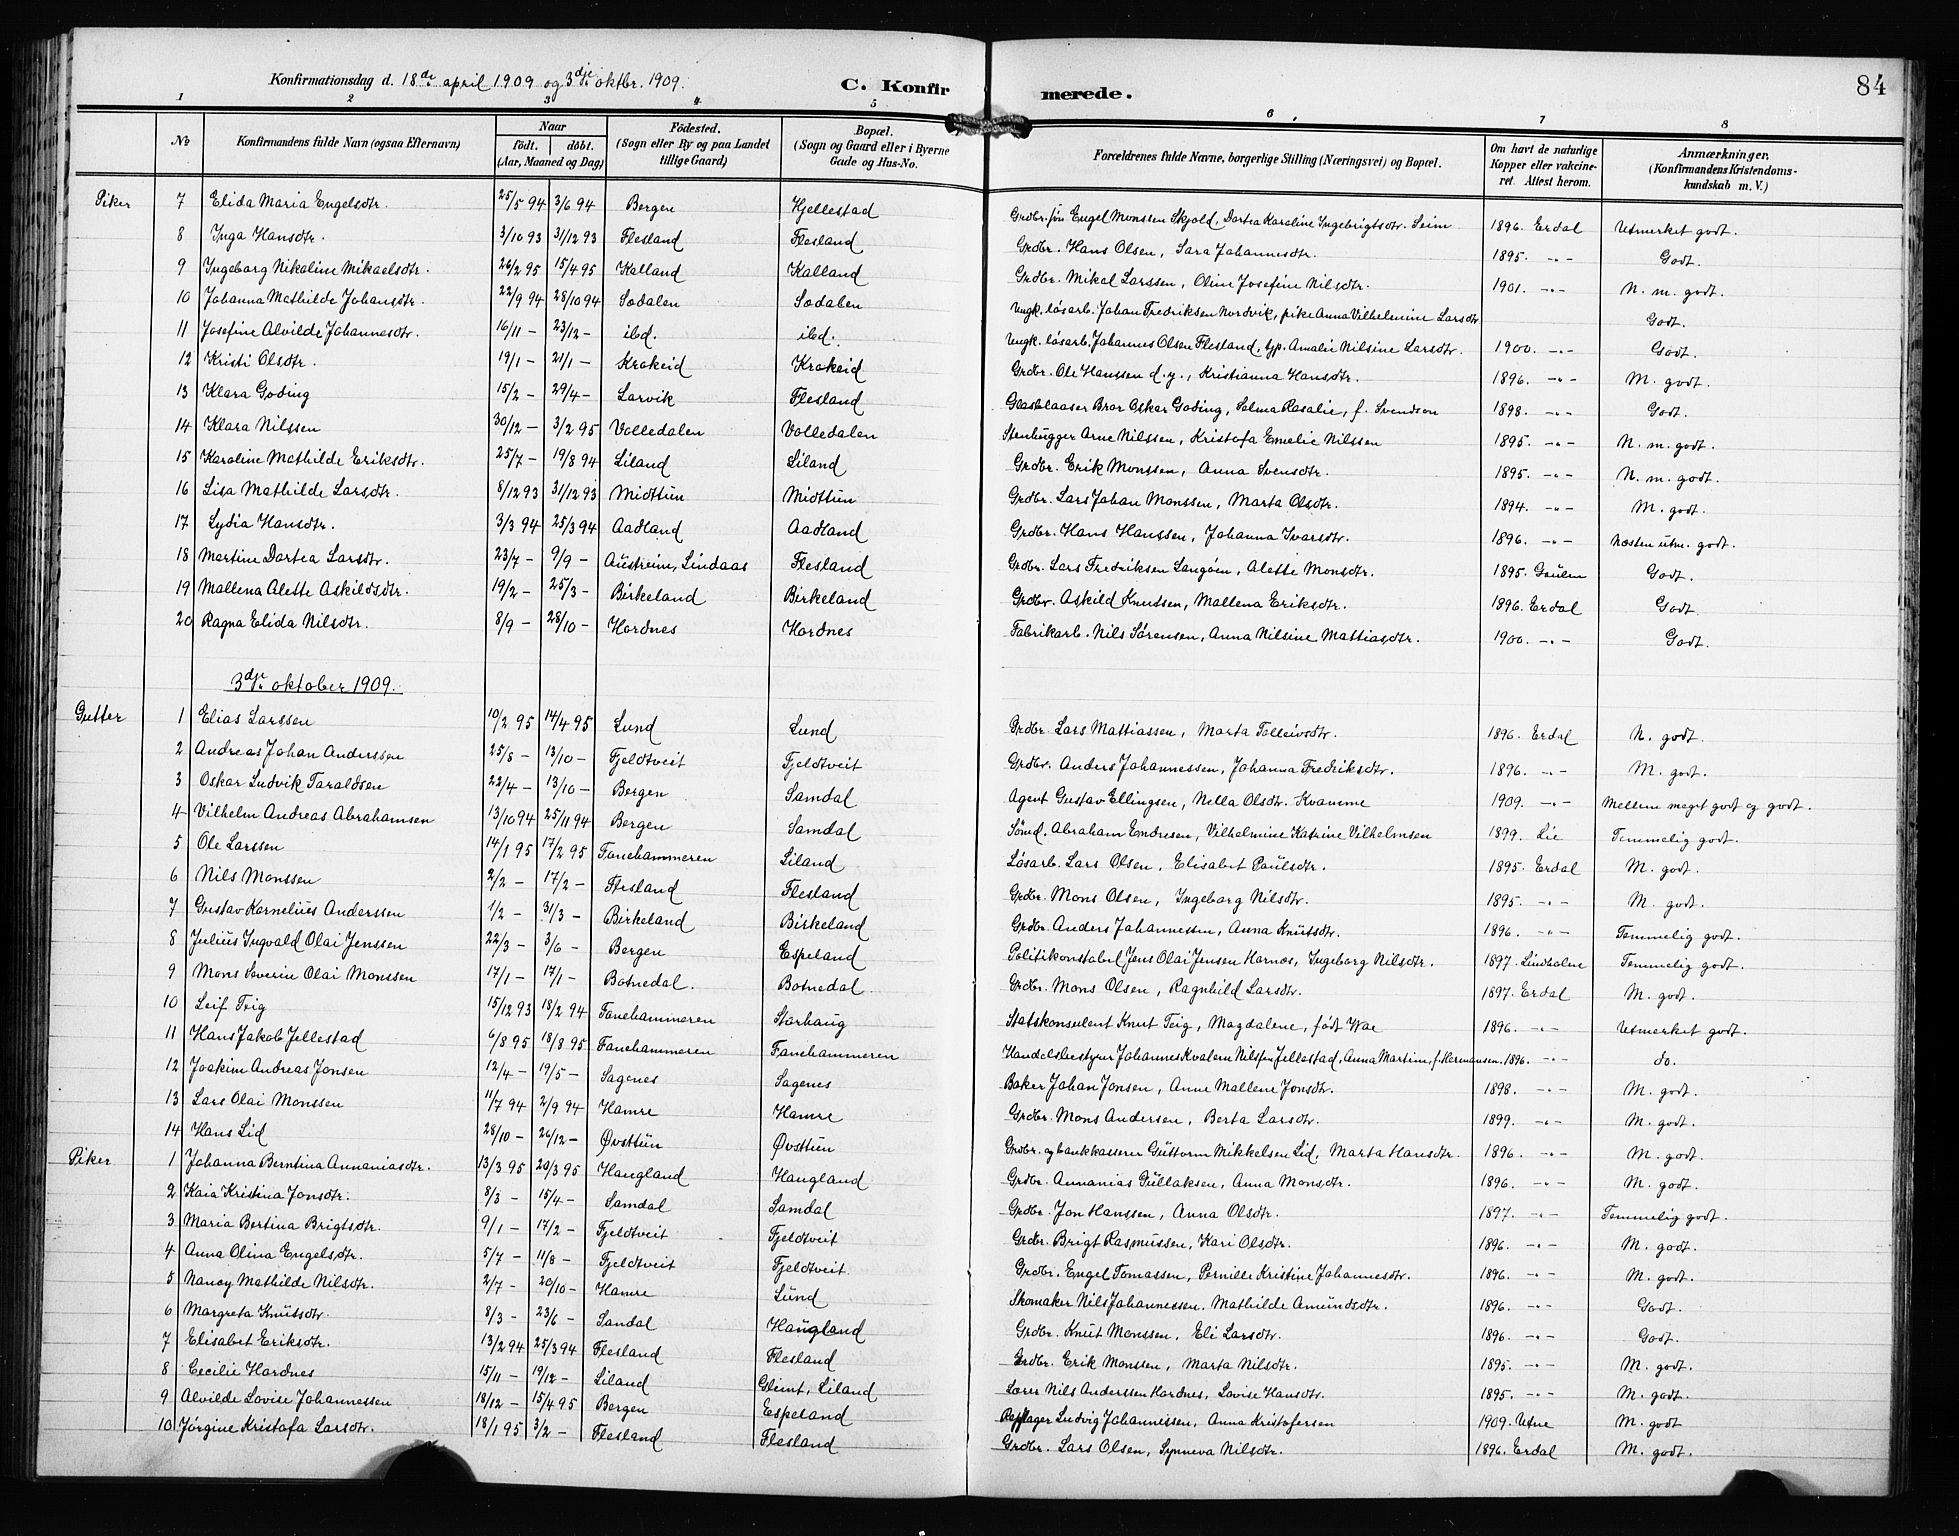 Konfirmationsdag d. 18de april 1909 og 3dje oktbr. 1909.
C. Konfirmerede.
84
1 2 3 4 5 6 7 8
No
Konfirmandens fulde Navn (ogsaa Efternavn)
Naar født. døbt. (Aar, Maaned og Dag)
Fødested. (Sogn eller By og paa Landet tillige Gaard)
Bopæl. (Sogn og Gaard eller i Byerne Gade og Hus-No.
Forældrenes fulde Navne, borgerlige Stilling (Næringsvei) og Bopæl.
Om havt de naturlige Kopper eller vakcineret. Attest herom.
Anmærkninger. (Konfirmandens Kristendomskundskab m. V.)
Piker 7 Elida Maria Engelsdtr. 25/5 94 3/6 94 Bergen Hjellestad Grdbr. søn Engel Monssen Skjold, Dortea Karoline Ingebrigtsdtr. Seim 1896. Erdal Utmerket godt.
8 Inga Hansdtr. 3/10 93 31/12 93 Flesland Flesland Grdbr. Hans Olsen, Sara Johannesdtr. 1895. -"- Godt.
9 Ingeborg Nikoline Mikaelsdtr. 26/2 95 15/4 95 Kalland Kalland Grdbr. Mikal Larssen, Oline Josefine Nilsdtr. 1901. -"- N. m. godt.
10 Johanna Mathilde Johansdtr. 22/9 94 28/10 94 Sødalen Sødalen Ungk. løsarb. Johan Fredriksen Nordvik, pike Anna Vilhelmine Larsdtr Godt.
11 Josefine Alvilde Johannesdtr. 16/11 - 23/12 - ibd. ibd. Ungk. løsarb. Johannes Olsen Flesland, typ. Amalie Nilsine Larsdtr. 1900. -"- Godt.
12 Kristi Olsdtr. 19/1 - 21/1 - Krokeid Krokeid Grdbr. Ole Hanssen d. y., Kristianna Hansdtr. 1896. -"- M. godt.
13 Klara Goding 15/2 - 29/4 - Larvik Flesland Glasblaaser Bror Oskar Goding, Selma Rosalie, f. Svendson 1898. -"- Godt.
14 Klara Nilssen 30/12 - 3/2 95 Volledalen Volledalen Stenhugger Arne Nilssen, Kristofa Emelie Nilssen 1895. -"- N. m. godt.
15 Karoline Mathilde Eriksdtr. 25/7 - 19/8 94 Liland Liland Grdbr. Erik Monssen, Anna Svensdtr. 1895. -"- N. m. godt.
16 Lisa Mathilde Larsdtr. 8/12 93 31/12 93 Midttun Midttun Grdbr. Lars Johan Monssen, Marta Olsdtr. 1894. -"- M. godt.
17 Lydia Hansdtr. 3/3 94 25/3 94 Aadland Aadland Grdbr. Hans Hanssen, Johanna Ivarsdtr. 1896. -"- Næsten utm. godt.
18 Martine Dortea Larsdtr. 23/7 - 9/9 - Austreim, Lindaas Flesland Grdbr. Lars Fredriksen Langøen, Alette Monsdtr. 1895. Gaulen Godt.
19 Mallena Alette Askildsdtr. 19/2 - 25/3 - Birkeland Birkeland Grdbr. Askild Knutsen, Mallena Eriksdtr. 1896. Erdal Godt.
20 Ragna Elida Nilsdtr. 8/9 - 28/10 - Hordnes Hordnes Fabrikarb. Nils Sørensen, Anna Nilsine Mattiasdtr. 1900. -"- Godt.
3dje oktober 1909.
Gutter 1 Elias Larssen 10/2 95 14/4 95 Lund Lund Grdbr. Lars Mattiassen, Marta Tolleivsdtr. 1896. Erdal N. godt.
2 Andreas Johan Anderssen 25/8 - 13/10 - Fjeldtveit Fjeldtveit Grdbr. Anders Johannessen, Johanna Fredriksdtr. 1896. -"- M. godt.
3 Oskar Ludvik Taraldsen 22/4 - 13/10 - Bergen Samdal Agent Gustav Ellingsen, Nella Olsdtr. Kvamme 1909. -"- Mellem meget godt og godt.
4 Vilhelm Andreas Abrahamsen 13/10 94 25/11 94 Bergen Samdal Sømd. Abraham Endresen, Vilhelmine Katrine Vilhelmsen 1899. Lie Temmelig godt.
5 Ole Larssen 14/1 95 17/2 95 Fanehammeren Liland Løsarb. Lars Olsen, Elisabet Paulsdtr. 1895. Erdal M. godt.
6 Nils Monssen 2/2 - 17/2 - Flesland Flesland Grdbr. Mons Olsen, Ingeborg Nilsdtr. 1895. -"- M. godt.
7 Gustav Kornelius Anderssen 1/2 - 31/3 - Birkeland Birkeland Grdbr. Anders Johannessen, Anna Knutsdtr. 1896. -"- Temmelig godt.
8 Julius Ingvald Olai Jenssen 22/3 - 3/6 - Bergen Espeland Politikonstabel Jens Olai Jensen Hornæs, Ingeborg Nilsdtr. 1897. Lindholm Temmelig godt.
9 Mons Severin Olai Monssen 17/1 - 17/1 - Botnedal. Botnedal. Grdbr. Mons Olsen, Ragnhild Larsdtr. 1897. Erdal M. godt.
10 Leif Teig 15/12 93 18/2 94 Fanehammeren Storhaug Statskonsulent Knut Teig, Magdalene, født Wae 1896. -"- Utmerket godt.
11 Hans Jakob Jellestad 6/8 95 18/8 95 Fanehammeren Fanehammeren Handelsbestyrer Johannes Kvalem Nilssen Jellestad, Anna Martine, f. Hermansen. 1896. -"- do.
12 Joakim Andreas Jonsen 12/4 - 19/5 - Sagenes Sagenes Baker Johan Jonsen, Anne Mallene Jonsdtr. 1898. -"- M. godt.
13 Lars Olai Monssen 11/7 94 2/9 94 Hamre Hamre Grdbr. Mons Andersen, Berta Larsdtr. 1899. -"- M. godt.
14 Hans Lid 28/10 - 26/12 - Øvsttun Øvsttun Grdbr. og bankkasserer Guttorm Mikkelsen Lid, Marta Hansdtr. 1896. -"- M. godt.
Piker 1 Johanna Berntina Annaniasdtr. 13/3 95 20/3 95 Haugland Haugland Grdbr. Annanias Gullaksen, Anna Monsdtr. 1896. -"- M. godt.
2 Kaia Kristina Jonsdtr. 8/3 - 15/4 - Samdal Samdal Grdbr. Jon Hanssen, Anna Olsdtr. 1897. -"- Temmelig godt.
3 Maria Bertina Brigtsdtr. 9/1 - 17/2 - Fjeldtveit Fjeldtveit Grdbr. Brigt Rasmussen, Kari Olsdtr. 1896. -"- M. godt.
4 Anna Olina Engelsdtr. 5/7 - 11/8 - Fjeldtveit Fjeldtveit. Grdbr. Engel Tomassen, Pernille Kristine Johannesdtr. 1896. -"- M. godt.
5 Nancy Mathilde Nilsdtr. 2/7 - 20/10 - Hamre Lund Skomaker Nils Johannessen, Mathilde Amundsdtr. 1896. -"- Godt.
6 Margreta Knutsdtr. 8/3 - 23/6 - Sandal Haugland Grdbr. Knut Monssen, Eli Larsdtr. 1896. -"- Godt.
7 Elisabet Eriksdtr. 13/2 94 25/3 94 Flesland Flesland Grdbr. Erik Monssen, Marta Nilsdtr. 1895. -"- M. godt.
8 Cecilie Hordnes 15/11 - 19/12 - Liland Glimt, Liland Lærer Nils Anderssen Hordnes, Lovise Hansdtr. 1895. -"- M. godt.
9 Alvilde Lovise Johannessen 18/12 - 15/4 95 Bergen Espeland Repslager Ludvig Johannessen, Anna Kristofersen 1909. Utne M. godt
10 Jørgine Kristofa Larsdtr. 18/1 95 3/2 - Flesland Flesland Grdbr. Lars Olsen, Synneva Nilsdtr. 1896. Erdal M. godt.